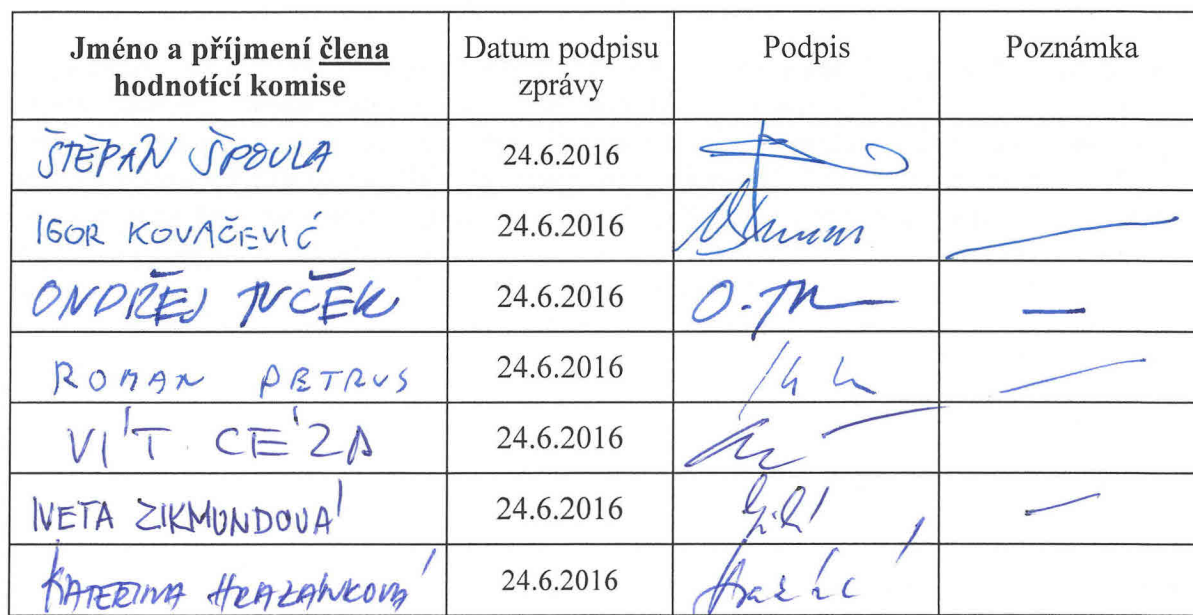 Jméno a příjmení člena hodnotící komise Datum podpisu zprávy Podpis Poznámka
ŠTĚPÁN ŠPOULA 24.6.2016
IGOR KOVAČEVIĆ 24.6.2016
ONDŘEJ TUČEK 24.6.2016
ROMAN PETRUS 24.6.2016
VÍT CÉZA 24.6.2016
IVETA ZIKMUNDOVÁ 24.6.2016
KATEŘINA 24.6.2016